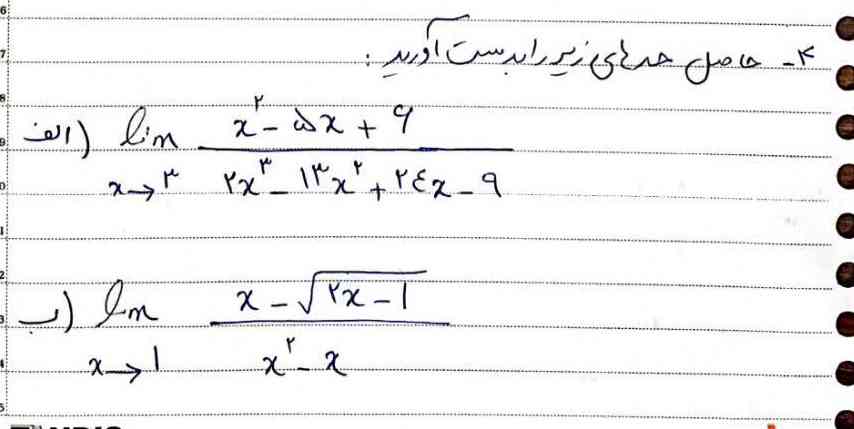 ۴- حاصل حدهای زیر را بدست آورید :
الف) lim x→۳ (x^۲ - ۵x + ۶) / (۲x^۳ - ۱۳x^۲ + ۲٤x - ۹)
ب) lim x→۱ (x - √(۲x - ۱)) / (x^۲ - x)